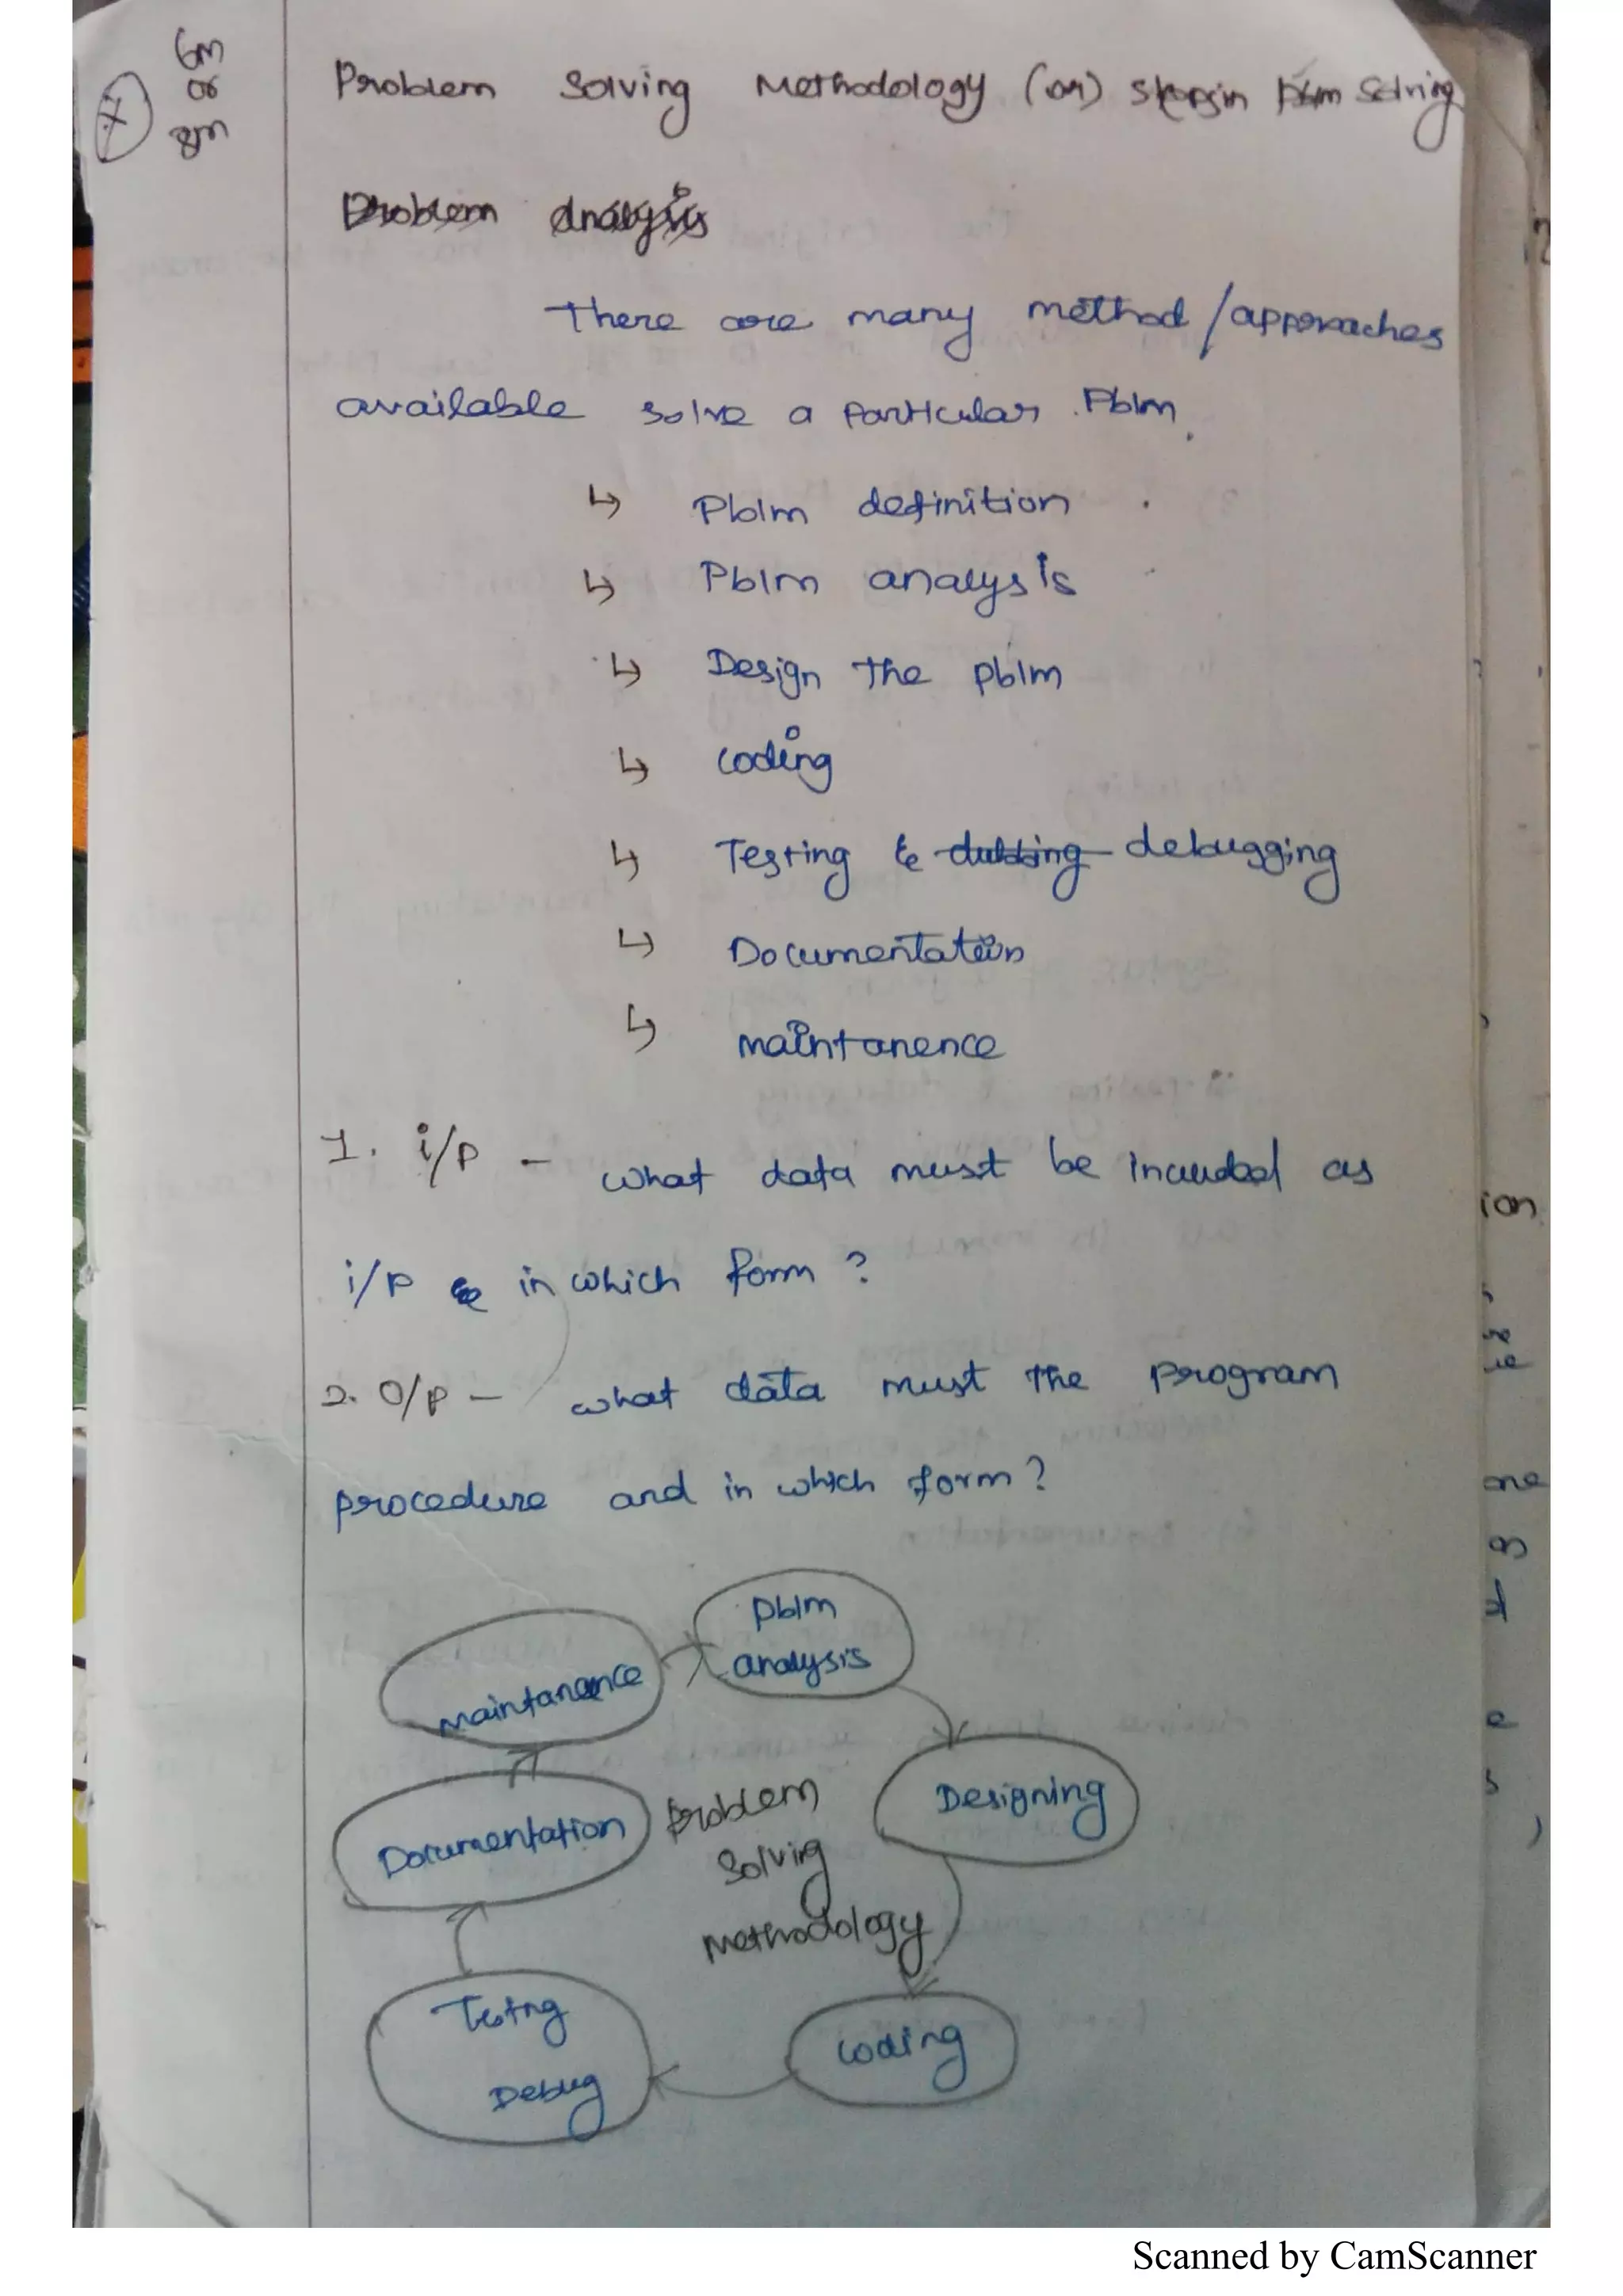 6m
or
8m
Problem Solving Methodology (or) steps in pblm solving
Problem Analysis
There are many method / approaches
available solve a particular Pblm.
↳ Pblm definition
↳ Pblm analysis
↳ Design the pblm
↳ coding
↳ Testing & debugging
↳ Documentation
↳ maintanence
1. i/p - what data must be included as
i/p & in which form ?
2. O/p - what data must the program
procedure and in which form ?
Pblm
analysis
Maintanance
Designing
Documentation
Problem
Solving
Methodology
Testng
Debug
Coding
ion
Scanned by CamScanner